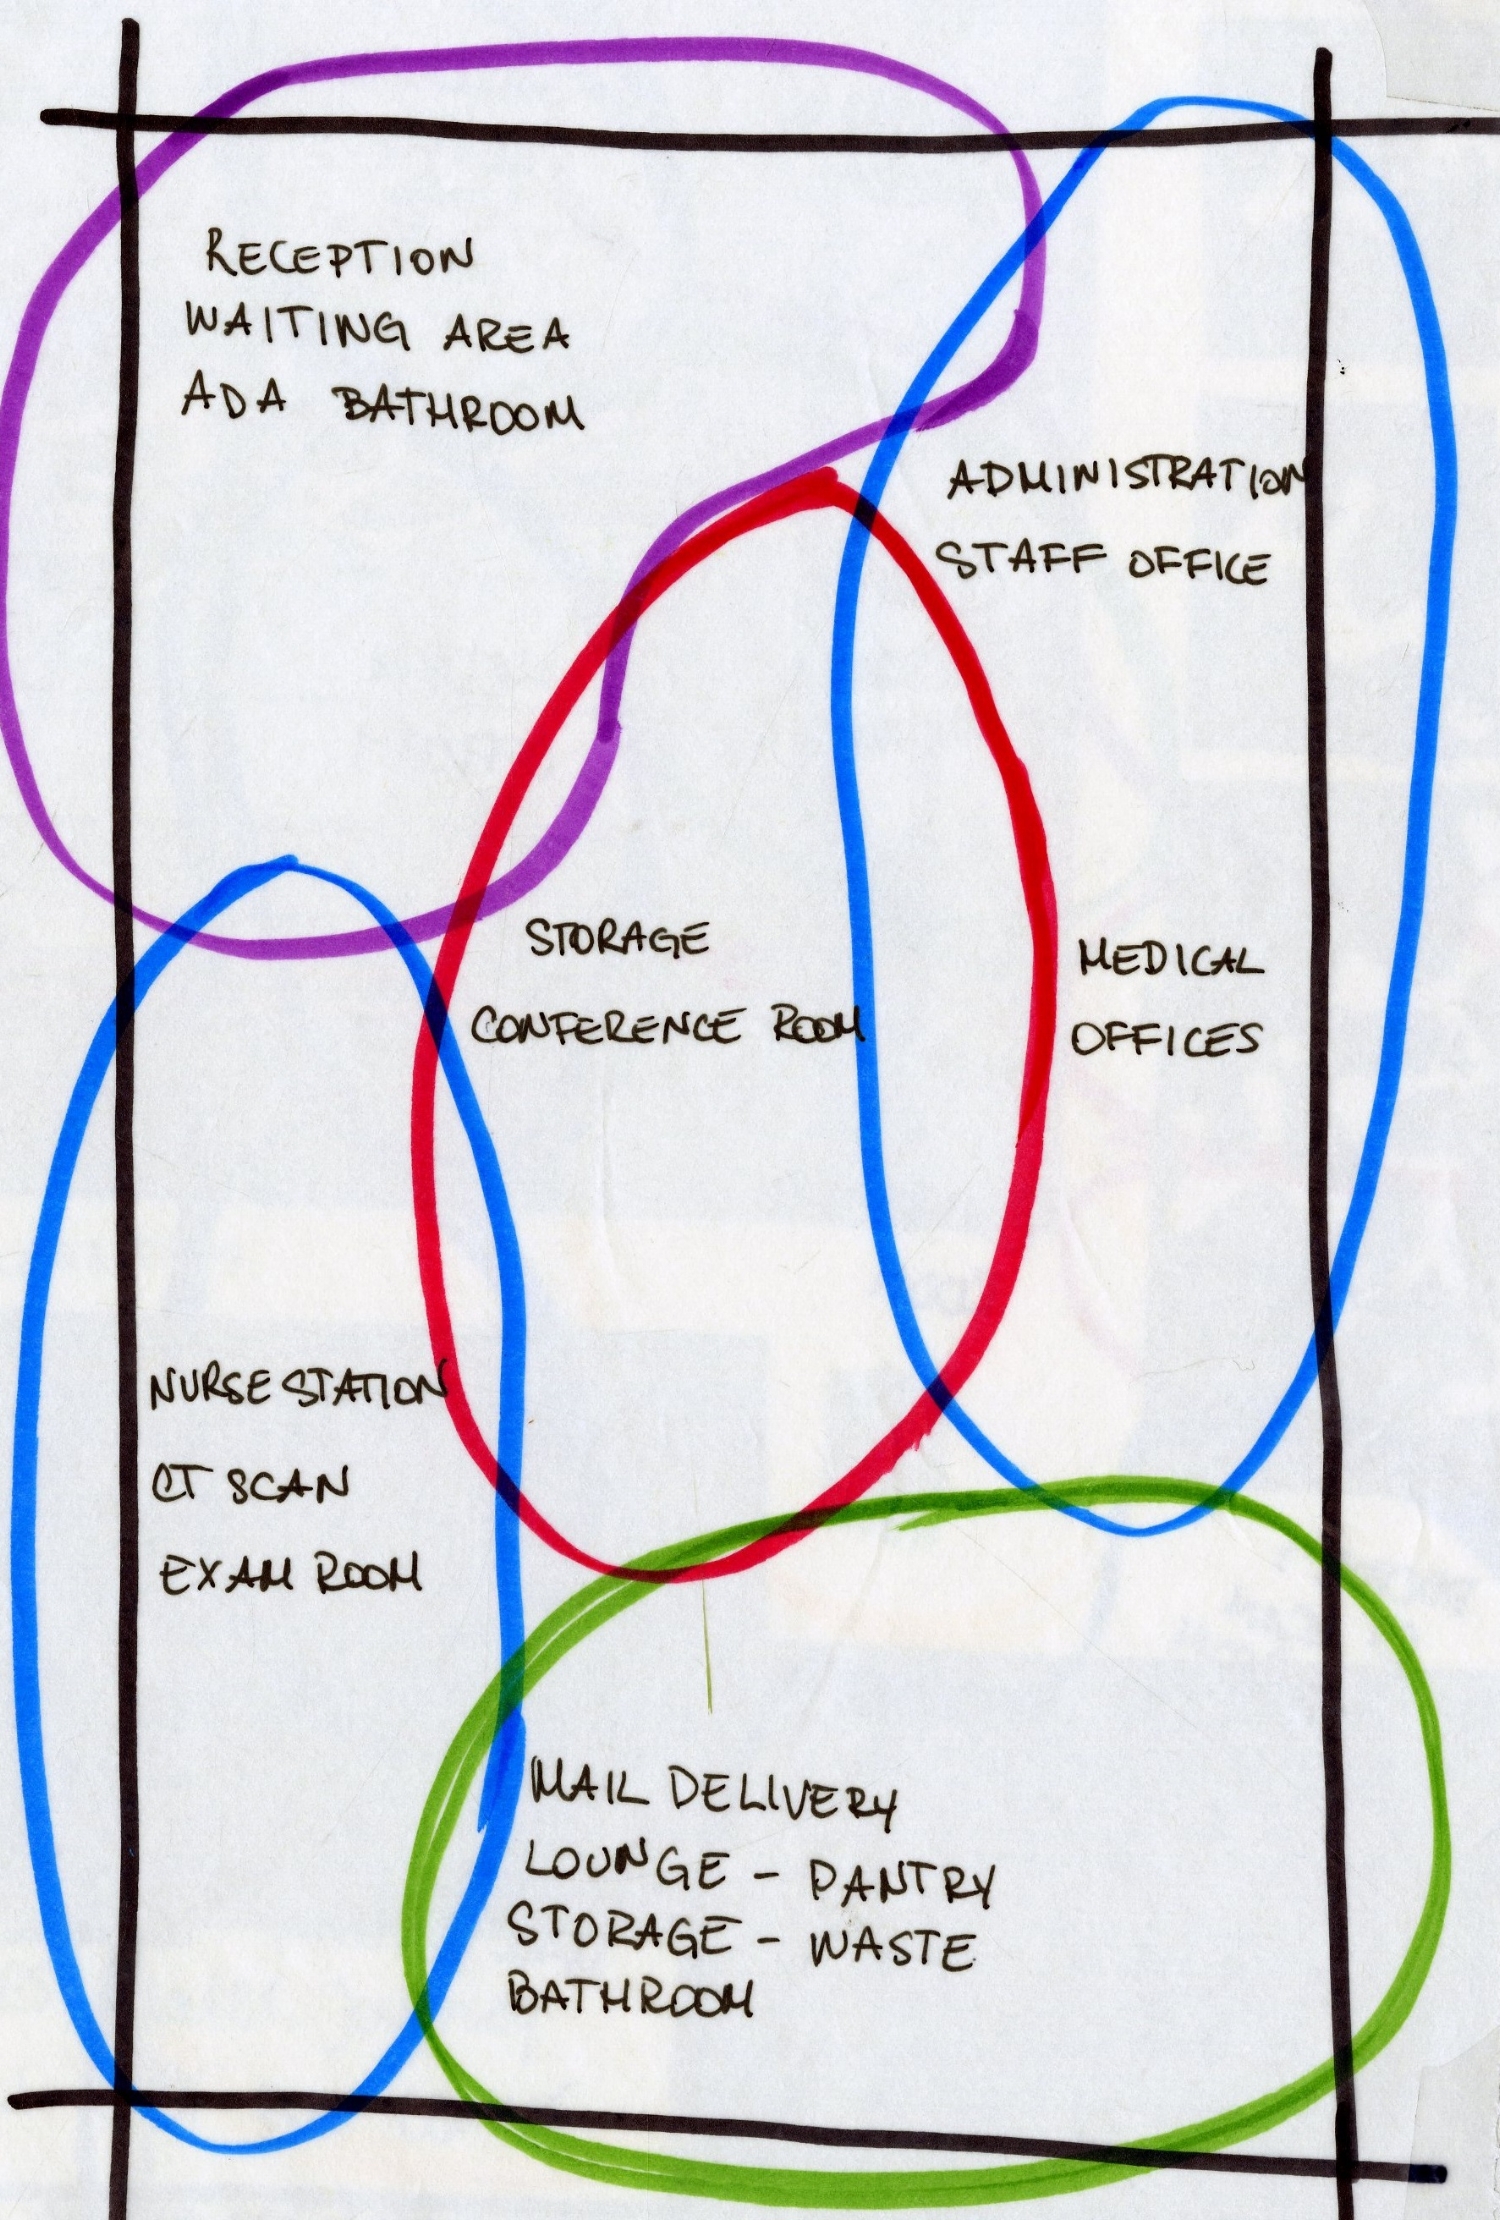 RECEPTION
WAITING AREA
ADA BATHROOM
ADMINISTRATION
STAFF OFFICE
STORAGE
CONFERENCE ROOM
MEDICAL
OFFICES
NURSE STATION
CT SCAN
EXAM ROOM
MAIL DELIVERY
LOUNGE - PANTRY
STORAGE - WASTE
BATHROOM